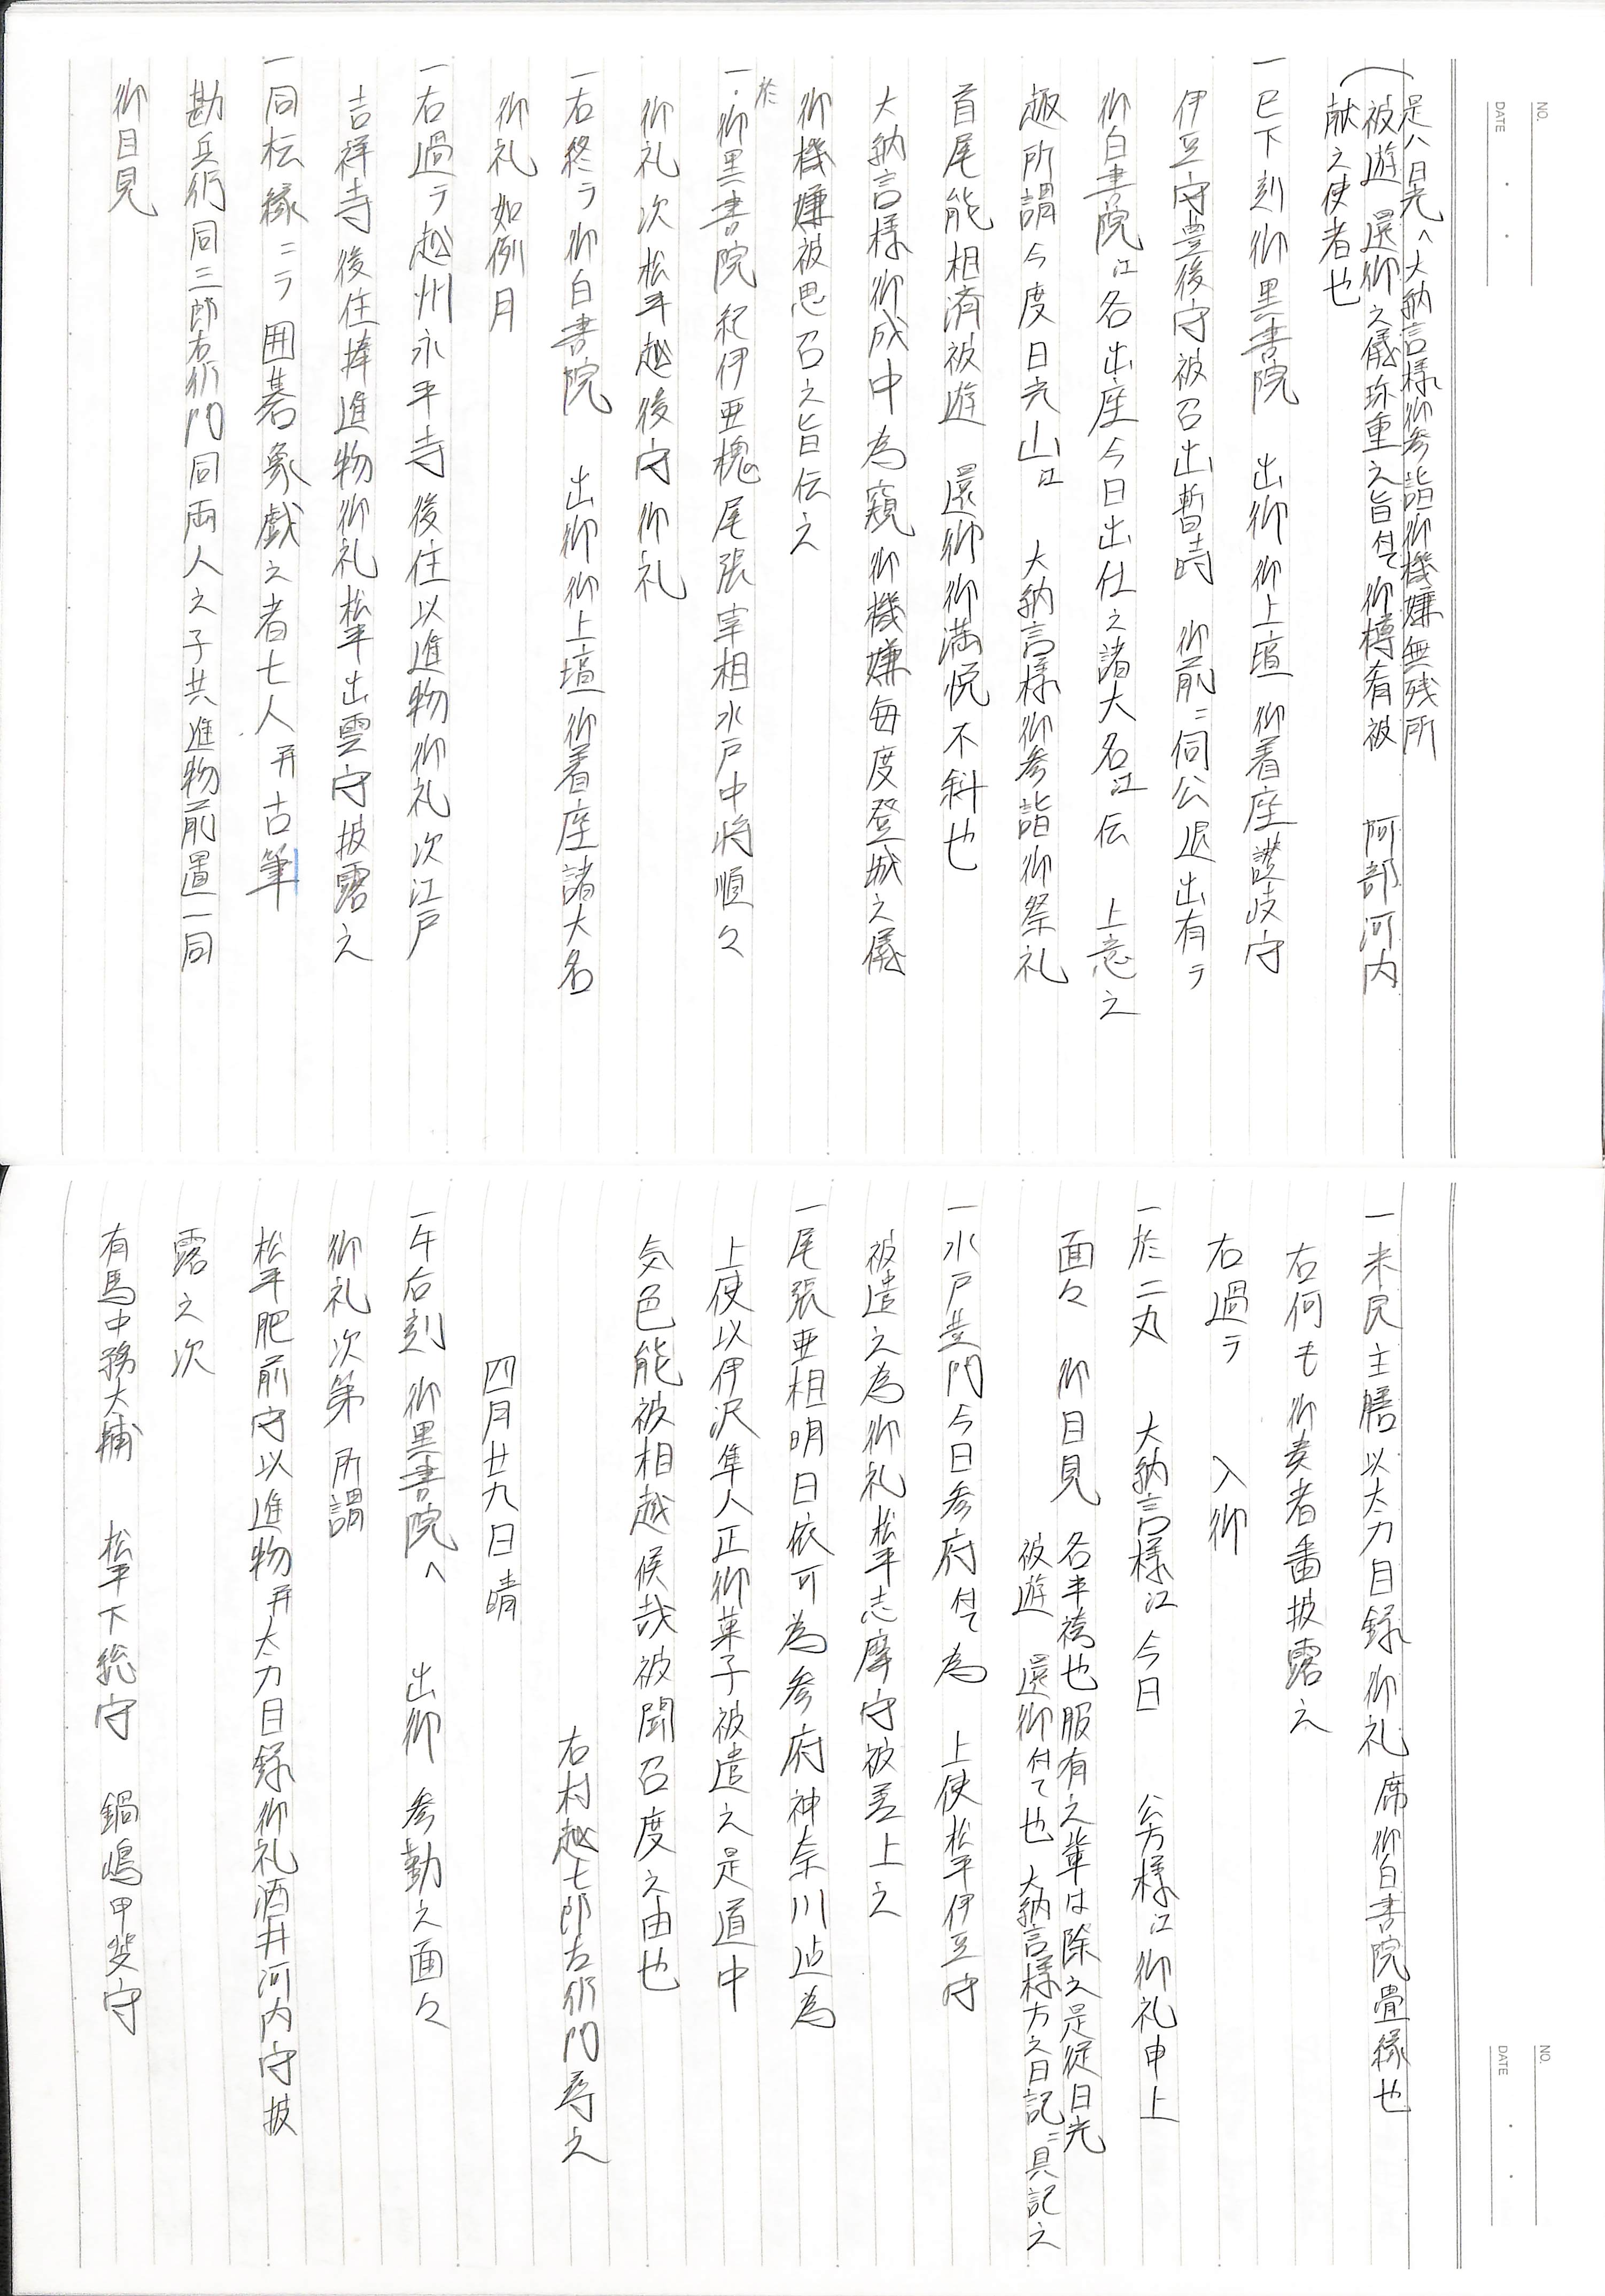 是八日光へ大納言様御参詣御機嫌無残所
被遊 還御之儀珍重之旨付て御樽肴被 阿部河内
献之使者也
一巳下刻御黒書院 出御御上壇御着座讃岐守
伊豆守豊後守被召出暫時 御前ニ伺公退出有テ
御白書院江名出座今日出仕之諸大名江伝 上意之
趣所謂今度日光山江 大納言様御参詣御祭礼
首尾能相済被遊 還御御満悦不斜也
大納言様御成中為窺御機嫌毎度登城之儀
御機嫌被思召之旨伝之
一於御黒書院紀伊亜槐尾張宰相水戸中将順々
御礼次松平越後守御礼
一右終テ御白書院 出御御上壇御着座諸大名
御礼如例月
一右過テ越州永平寺後住以進物御礼次江戸
吉祥寺後住捧進物御礼松平出雲守披露之
一同板縁ニテ囲碁象戯之者七人并古筆
勘兵衛同三郎右衛門同両人之子共進物前置一同
御目見
一米良主膳以太刀目録御礼席御白書院畳縁也
右何も御奏者番披露之
右過テ 入御
一於二丸 大納言様江今日 公方様江御礼申上
面々 御目見 名半袴也服有之輩は除之是従日光
被遊 還御付て也大納言様方之日記ニ具記之
一水戸黄門今日参府付て為 上使松平伊豆守
被遣之為御礼松平志摩守被差上之
一尾張亜相明日依可為参府神奈川迄為
上使以伊沢隼人正御菓子被遣之是道中
気色能被相越候哉被聞召度之由也
右村越七郎左衛門尋之
四月廿九日晴
一午后刻御黒書院へ 出御 参勤之面々
御礼次第所謂
松平肥前守以進物并太刀目録御礼酒井河内守披
露之次
有馬中務大輔 松平下総守 鍋嶋甲斐守
NO.
DATE
NO.
DATE